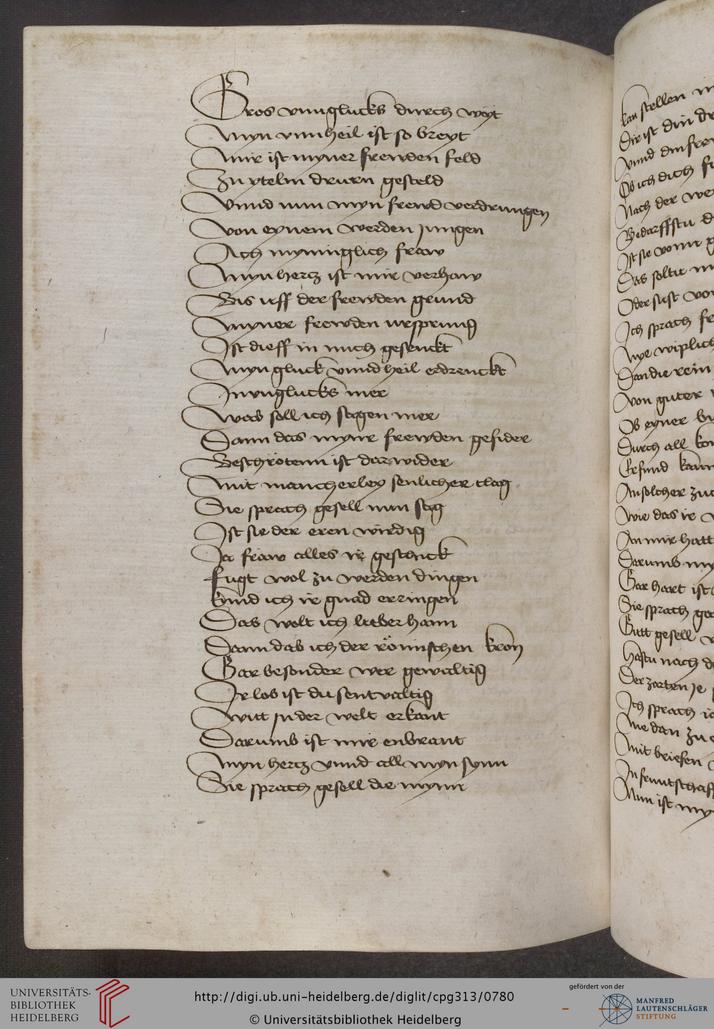 Gros vnnglucks durch weyt
Myn vnnheil ist so breyt
Mir ist myner frewden feld
Zu ytelm druren gesteld
Vnnd nun myn frewd verdrungen
Von eynem werden jungen
Ach mynniglich fraw
Myn hertz ist mir verhaw
Bis uff der frewden grund
Myner frewden ursprung
Ist dieff in mich gesenckt
Myn gluck vnnd heil erdrenckt
In vnglucks mer
Was soll ich sagen mer
Dann das myne frewden gefider
Beschrotenn ist dar wider
Mit mancherley senlicher clag
Sie sprach gesell nun sag
Ist sie der eren wirdig
Ja fraw alles ir geschick
Fugt wol zu werden dingen
Kund ich ir gnad erringen
Das wolt ich lieber hann
Dann das ich der römischen kron
Gar besonder wer gewaltig
Ir lob ist dusentvaltig
Witt jn der welt erkant
Darumb ist mir enbrant
Myn hertz vnnd all myn synn
Sie sprach gesell die mynn
kan stellen
Dir ist din
Vnnd din
Ob ich dich
Nach der
Bedarffstu
Ist sie vonn
Das soltu
Oder sust von
Ich sprach
Wye wiplich
Dan die rein
Von guter
Ob eyner
Durch all
Erfund kann
An solcher
Wie das ir
An mir hatt
Darumb
Gar hart ist
Sie sprach
Gutt gesell
Hastu nach
Der zarten je
Ich sprach
Wie dan zu
Mit briefen
In
Nun ist my
UNIVERSITÄTS-
BIBLIOTHEK
HEIDELBERG
http://digi.ub.uni-heidelberg.de/diglit/cpg313/0780
© Universitätsbibliothek Heidelberg
gefördert von der
MANFRED
LAUTENSCHLÄGER
STIFTUNG